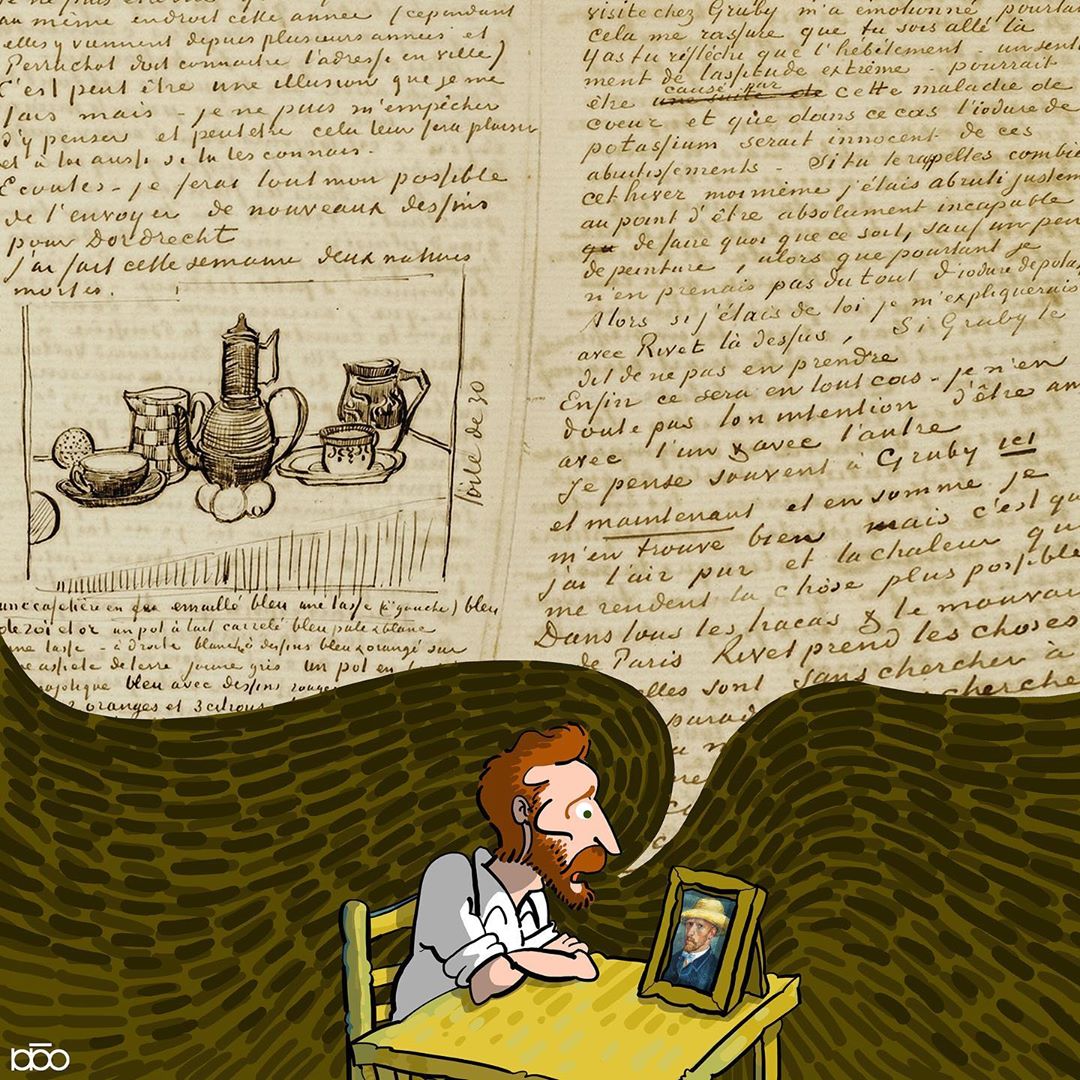 au même endroit cette année (cependant
elles y viennent depuis plusieurs années et
Perruchot doit connaitre l'adresse en ville)
C'est peut être une illusion que je me
fais mais – je ne puis m'empêcher
d'y penser et peutetre cela leur fera plaisir
et à toi aussi si tu les connais.
Ecoutes – je ferai tout mon possible
de t'envoyer de nouveaux dessins
pour Dordrecht
J'ai fait cette semaine deux natures
mortes.
toile de 30
une cafetière en fer emaillé bleu une tasse (à gauche) bleu
de roi et or un pot à lait carrelé bleu pale & blanc
une tasse – à droite blanche à dessins bleu & orangé sur
une assiete de terre jaune gris un pot en
majolique bleu avec dessins rouges
2 oranges et 3 citrons
visite chez Gruby m'a emotionné pourtant
cela me rassure que tu sois allé là
As tu réfléchi que l'hébètement – un senti
ment de lassitude extrême – pourrait
être une suite de causé par cette maladie de
coeur et que dans ce cas l'iodure de
potassium serait innocent de ces
abrutissements – Si tu te rappelles combien
cet hiver moi même j'étais abruti justem
au point d'être absolument incapable
de faire quoi que ce soit, sauf un peu
de peinture, alors que pourtant je
n'en prenais pas du tout d'iodure de pota
Alors si j'étais de toi je m'expliquerais
avec Rivet là dessus, Si Gruby te
dit de ne pas en prendre
Enfin ce sera en tout cas – je n'en
doute pas ton intention d'être am
avec l'un & avec l'autre
Je pense souvent à Gruby ici
et maintenant et en somme je
m'en trouve bien mais c'est que
j'ai l'air pur et la chaleur qui
me rendent la chose plus possible
Dans tous les tracas & le mauvais
de Paris Rivet prend les choses
elles sont sans chercher à
parad
chercher
póo